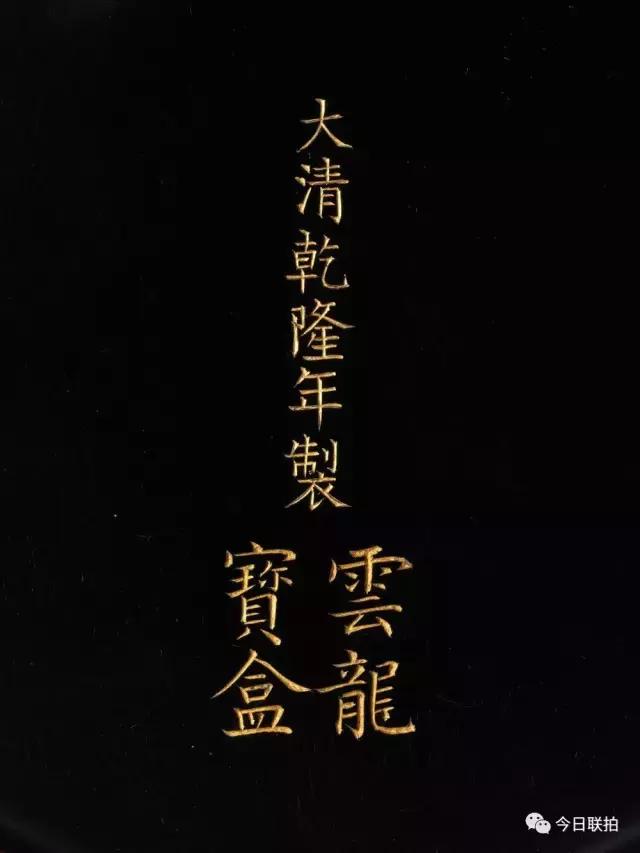 大清乾隆年製
雲龍
寶盒
今日联拍